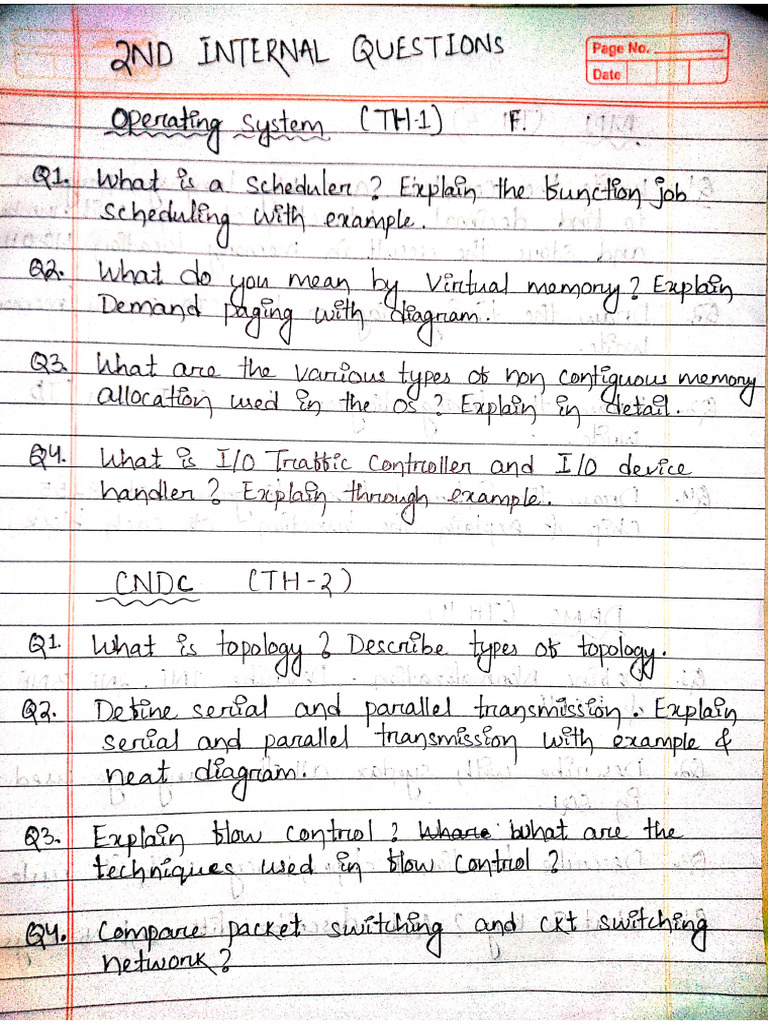 2ND INTERNAL QUESTIONS
Page No.
Date
Operating System (TH-1) F.
Q1. What is a scheduler? Explain the function job
scheduling with example.
Q2. What do you mean by Virtual memory? Explain
Demand paging with diagram.
Q3. What are the various types of non contiguous memory
allocation used in the os? Explain in detail.
Q4. What is I/O Traffic Controller and I/O device
handler? Explain through example.
CNDC (TH-2)
Q1. What is topology? Describe types of topology.
Q2. Define serial and parallel transmission. Explain
serial and parallel transmission with example &
neat diagram.
Q3. Explain flow control? Whare What are the
techniques used in flow control?
Q4. Compare packet switching and ckt switching
network?